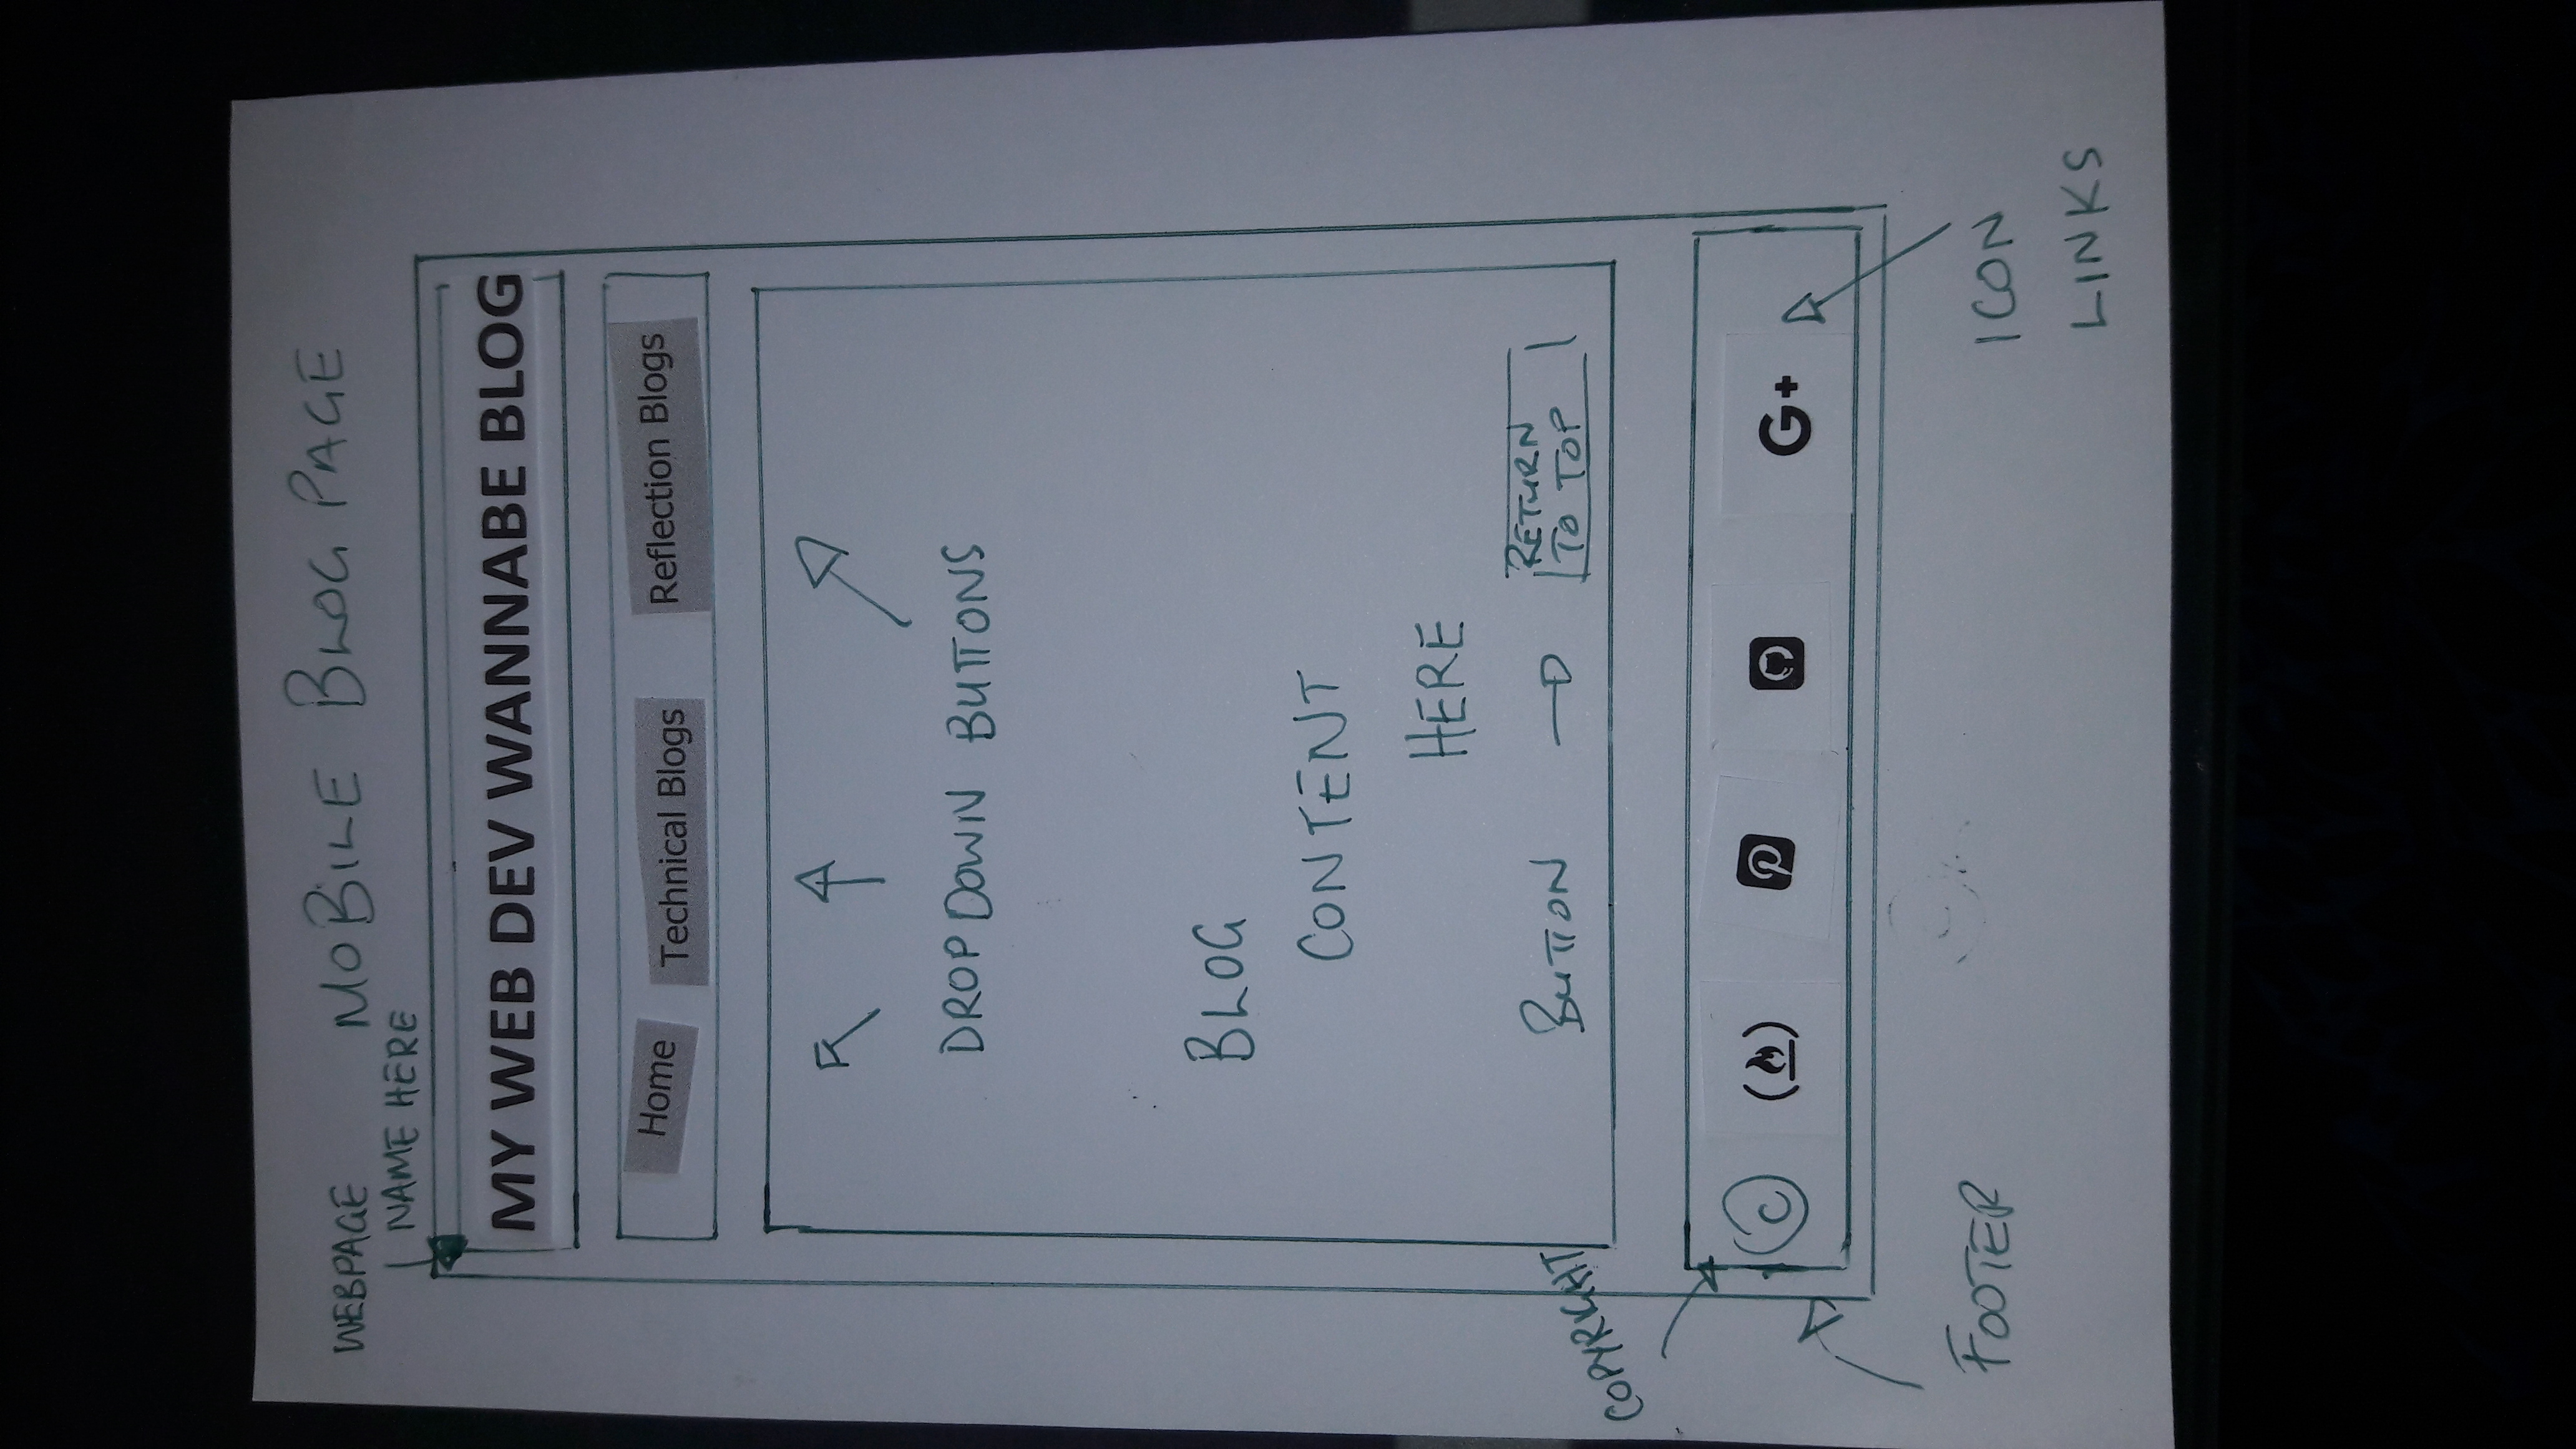 MOBILE BLOG PAGE
WEBPAGE
NAME HERE
MY WEB DEV WANNABE BLOG
Home
Technical Blogs
Reflection Blogs
DROPDOWN BUTTONS
BLOG
CONTENT
HERE
BUTTON
RETURN
TO TOP
COPYRIGHT
©
G+
FOOTER
ICON
LINKS